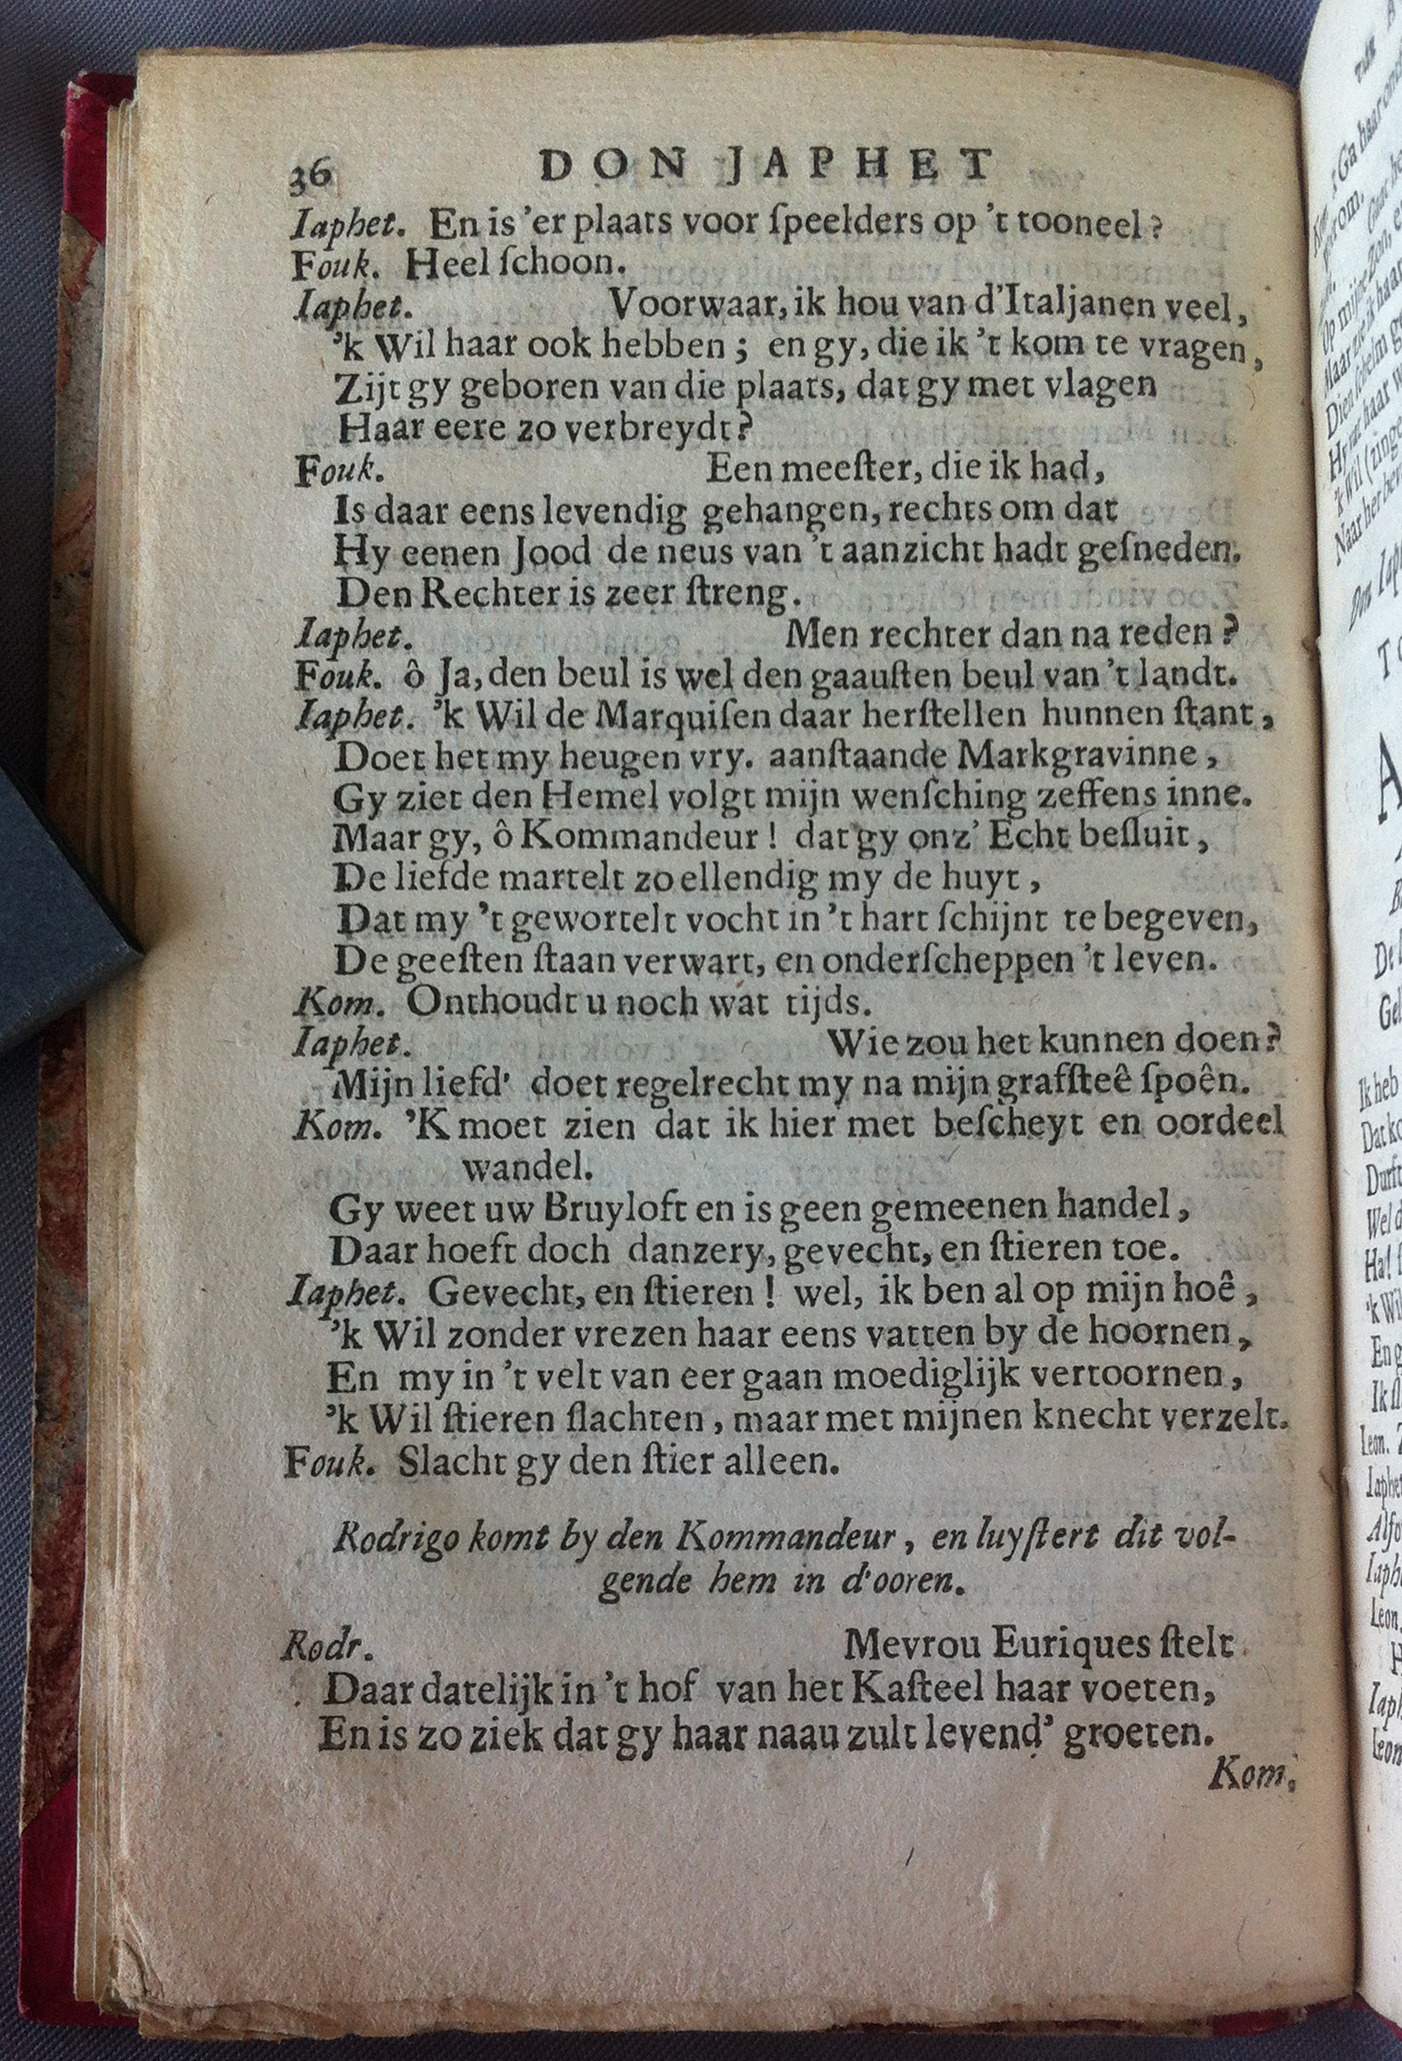 36 DON JAPHET
Iaphet. En is 'er plaats voor ſpeelders op 't tooneel?
Fouk. Heel ſchoon.
Iaphet. Voorwaar, ik hou van d'Italjanen veel,
'k Wil haar ook hebben; en gy, die ik 't kom te vragen,
Zijt gy geboren van die plaats, dat gy met vlagen
Haar eere zo verbreydt?
Fouk. Een meeſter, die ik had,
Is daar eens levendig gehangen, rechts om dat
Hy eenen Jood de neus van 't aanzicht hadt geſneden.
Den Rechter is zeer ſtreng.
Iaphet. Men rechter dan na reden?
Fouk. ô Ja, den beul is wel den gaauſten beul van 't landt.
Iaphet. 'k Wil de Marquiſen daar herſtellen hunnen ſtant,
Doet het my heugen vry. aanſtaande Markgravinne,
Gy ziet den Hemel volgt mijn wenſching zeffens inne.
Maar gy, ô Kommandeur! dat gy onz' Echt beſluit,
De liefde martelt zo ellendig my de huyt,
Dat my 't gewortelt vocht in 't hart ſchijnt te begeven,
De geeſten ſtaan verwart, en onderſcheppen 't leven.
Kom. Onthoudt u noch wat tijds.
Iaphet. Wie zou het kunnen doen?
Mijn liefd' doet regelrecht my na mijn grafſteê ſpoên.
Kom. 'K moet zien dat ik hier met beſcheyt en oordeel
wandel.
Gy weet uw Bruyloft en is geen gemeenen handel,
Daar hoeft doch danzery, gevecht, en ſtieren toe.
Iaphet. Gevecht, en ſtieren! wel, ik ben al op mijn hoê,
'k Wil zonder vrezen haar eens vatten by de hoornen,
En my in 't velt van eer gaan moediglijk vertoornen,
'k Wil ſtieren ſlachten, maar met mijnen knecht verzelt.
Fouk. Slacht gy den ſtier alleen.
Rodrigo komt by den Kommandeur, en luyſtert dit vol-
gende hem in d'ooren.
Rodr. Mevrou Euriques ſtelt
Daar datelijk in 't hof van het Kaſteel haar voeten,
En is zo ziek dat gy haar naau zult levend' groeten.
Kom.